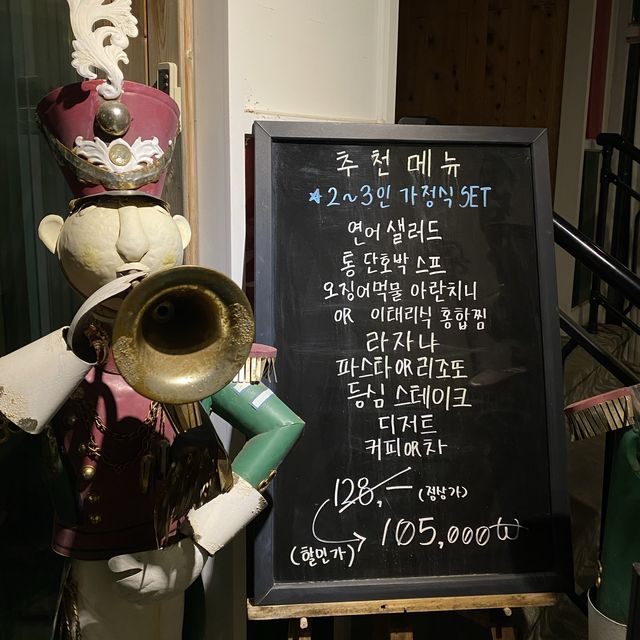 추천메뉴
★2~3인 가정식 SET
연어 샐러드
통 단호박 스프
오징어먹물 아란치니
OR 이태리식 홍합찜
라자냐
파스타OR리조또
등심 스테이크
디저트
커피OR차
128,- (정상가)
(할인가) 105,000₩